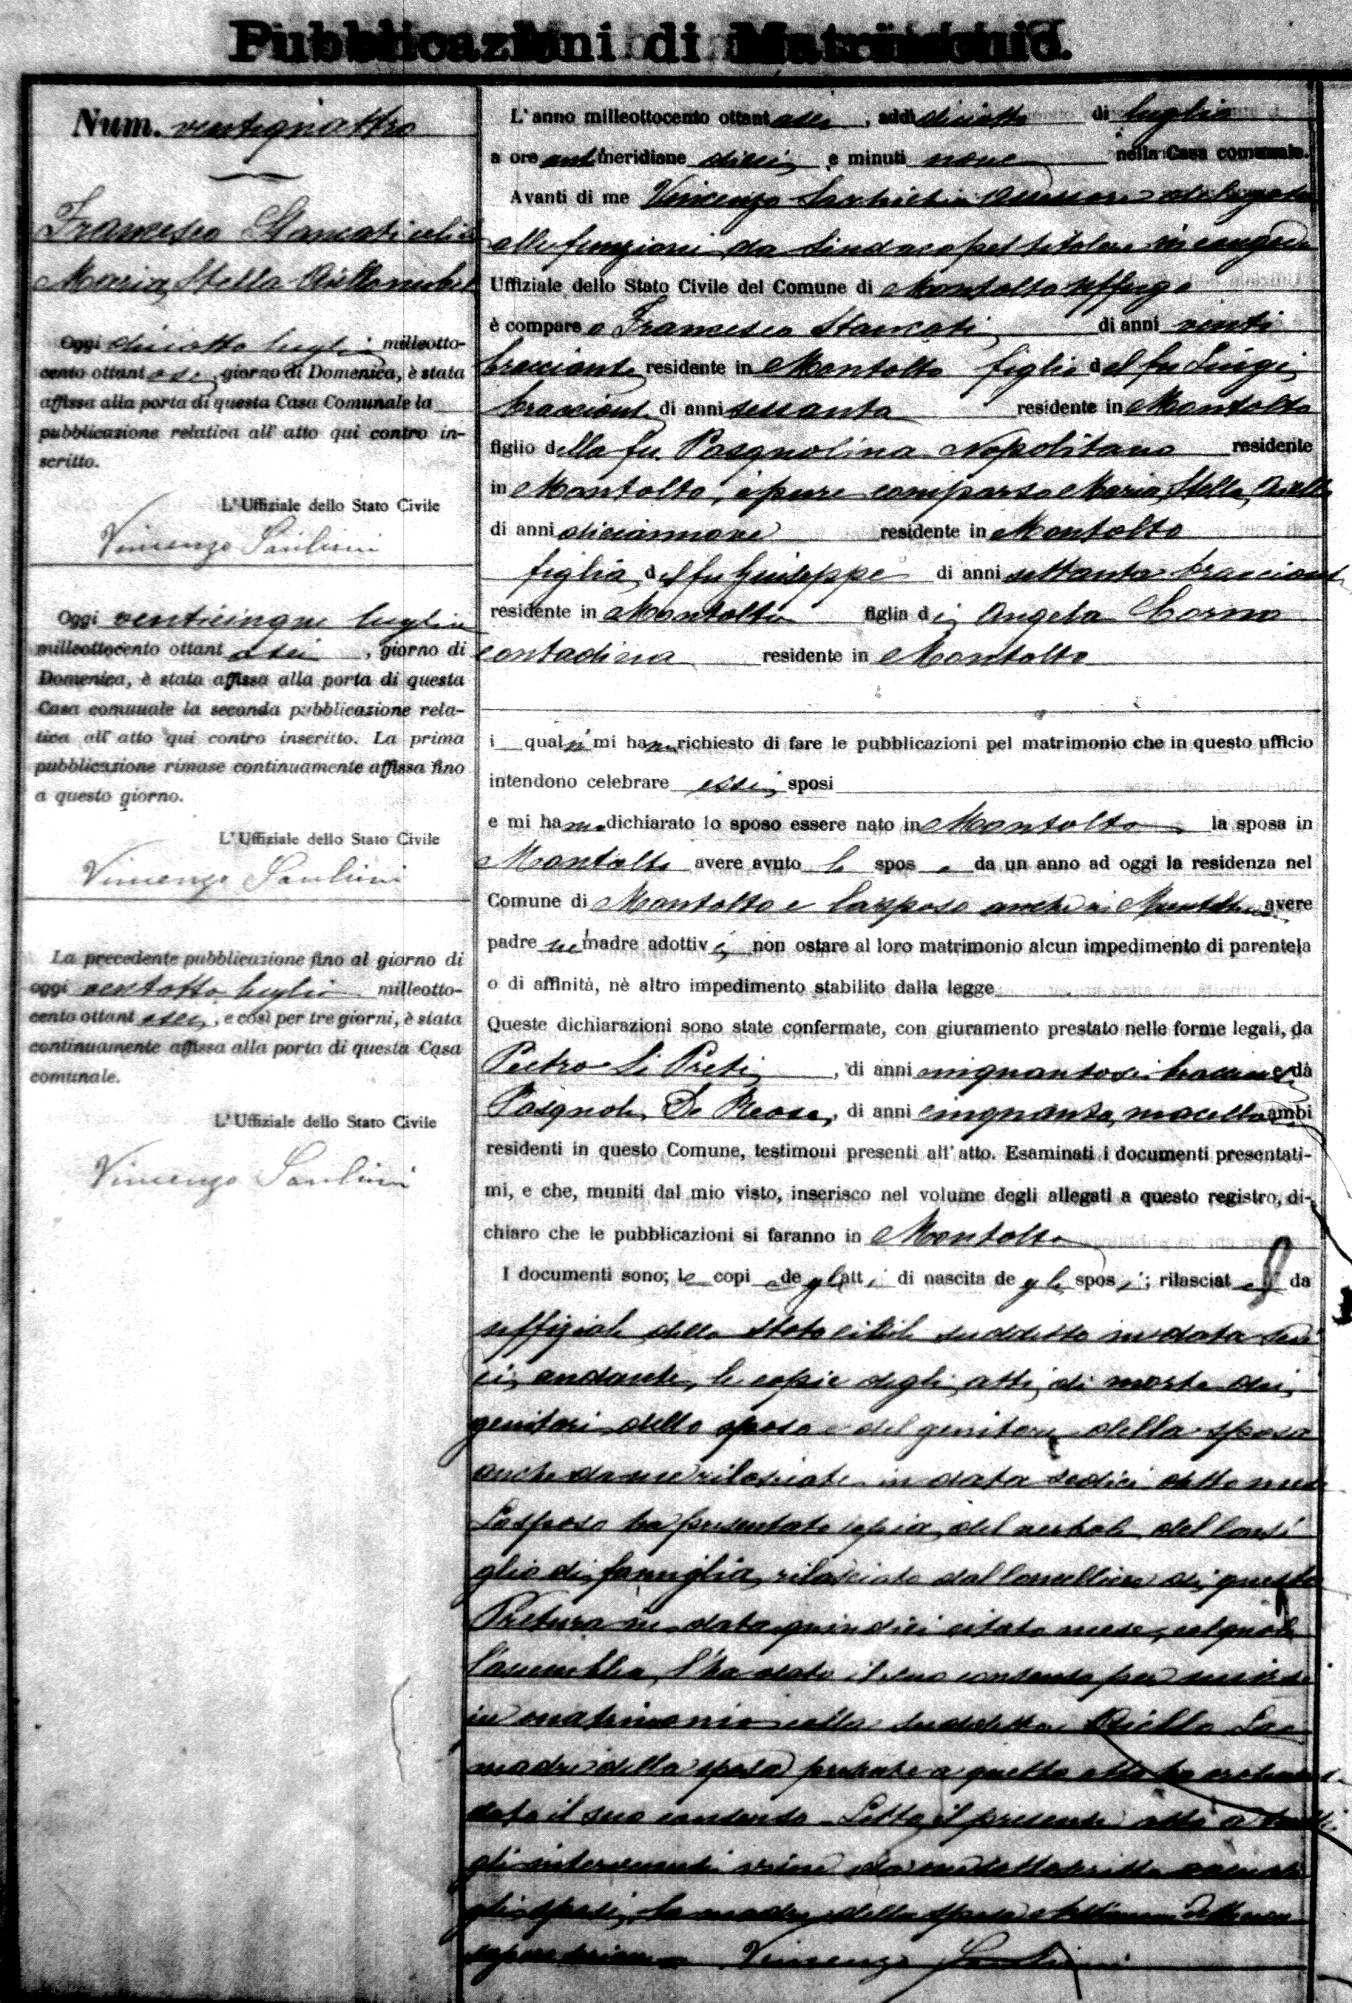 Pubblicazioni di Matrimonio.
Num. ventiquattro
Francesco Stancati colla
Maria Stella Aiello nubile
Oggi diciotto luglio milleotto-
cento ottantasei, giorno di Domenica, è stata
affissa alla porta di questa Casa Comunale la
pubblicazione relativa all' atto quì contro in-
scritto.
L'Uffiziale dello Stato Civile
Vincenzo
Oggi venticinque luglio
milleottocento ottantasei, giorno di
Domenica, è stata affissa alla porta di questa
Casa comunale la seconda pubblicazione rela-
tiva all' atto qui contro inserito. La prima
pubblicazione rimase continuamente affissa fino
a questo giorno.
L'Uffiziale dello Stato Civile
Vincenzo
La precedente pubblicazione fino al giorno di
oggi ventotto luglio milleotto-
cento ottantasei, e così per tre giorni, è stata
continuamente affissa alla porta di questa Casa
comunale.
L'Uffiziale dello Stato Civile
Vincenzo
L'anno milleottocento ottantasei, addì diciotto di luglio
a ore antimeridiane dieci e minuti nove nella Casa comunale.
Avanti di me Vincenzo Assessore delegato
alle funzioni da Sindaco pel titolare in congedo
Uffiziale dello Stato Civile del Comune di Montalto Uffugo
è comparso Francesco Stancati di anni venti
bracciante residente in Montalto figlio del fu Luigi
bracciante di anni sessanta residente in Montalto
figlio della fu Pasqualina Napolitano residente
in Montalto, è pure comparsa Maria Stella Aiello
di anni diciannove residente in Montalto
figlia del fu Giuseppe di anni settanta bracciante
residente in Montalto figlia di Angela
contadina residente in Montalto
i quali mi hanno richiesto di fare le pubblicazioni pel matrimonio che in questo ufficio
intendono celebrare essi sposi
e mi hanno dichiarato lo sposo essere nato in Montalto la sposa in
Montalto avere avuto lo sposo da un anno ad oggi la residenza nel
Comune di Montalto e la sposa anche in Montalto avere
padre nè madre adottivi, non ostare al loro matrimonio alcun impedimento di parentela
o di affinità, nè altro impedimento stabilito dalla legge
Queste dichiarazioni sono state confermate, con giuramento prestato nelle forme legali, da
Pietro Li Preti, di anni cinquantasei bracciante da
Pasquale De Rose, di anni cinquanta, macellaio ambi
residenti in questo Comune, testimoni presenti all' atto. Esaminati i documenti presentati-
mi, e che, muniti dal mio visto, inserisco nel volume degli allegati a questo registro, di-
chiaro che le pubblicazioni si faranno in Montalto
I documenti sono; le copie degli atti di nascita degli sposi; rilasciate da
uffiziale dello stato civile suddetto in data
andante, le copie degli atti di morte dei
genitori dello sposo e del genitore della sposa
anche da me rilasciate in data sedici detto mese
Lo sposo ha presentato copia del verbale del Consi
glio di famiglia rilasciato dal Cancelliere di questa
Pretura in data quindici citato mese, col quale
l'assemblea l'ha dato il suo consenso per unirsi
in matrimonio colla suddetta Aiello. La
madre della sposa presente a questo atto ha
dato il suo consenso. Letto il presente atto a tutti
gli intervenuti viene da me sottoscritto
gli sposi, la madre della sposa
Vincenzo